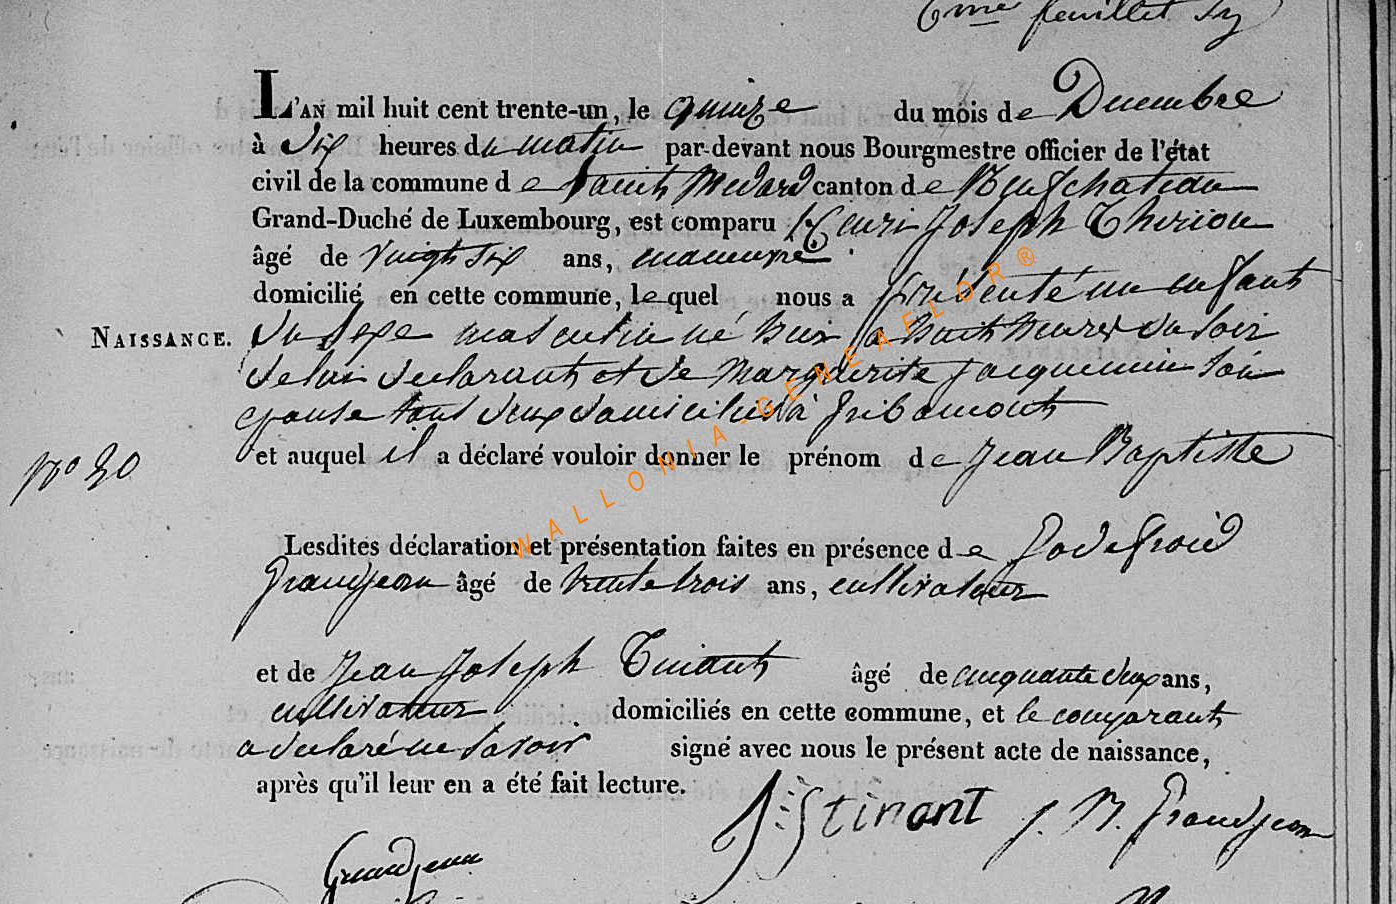 6me feuillet
L'AN mil huit cent trente-un, le quinze du mois de Decembre
à six heures du matin par-devant nous Bourgmestre officier de l'état
civil de la commune de Saint Medard canton de Neufchateau
Grand-Duché de Luxembourg, est comparu Henri Joseph Therion
âgé de vingt six ans, manuvre
domicilié en cette commune, lequel nous a présenté un enfant
NAISSANCE. du sexe masculin né hier a huit heures du soir
de lui declarant et de Marguerite Jacquemin son
epouse tous deux domiciliés à Gribomont
No 30 et auquel il a déclaré vouloir donner le prénom de Jean Baptiste
Lesdites déclaration et présentation faites en présence de Godefroid
Grandjean âgé de trente trois ans, cultivateur
et de Jean Joseph Tinant âgé de cinquante deux ans,
cultivateur domiciliés en cette commune, et le comparant
a declaré ne savoir signé avec nous le présent acte de naissance,
après qu'il leur en a été fait lecture.
J: J tinant J. N. Grandjean
Grandjean
WALLONIA-GENEAELOR®